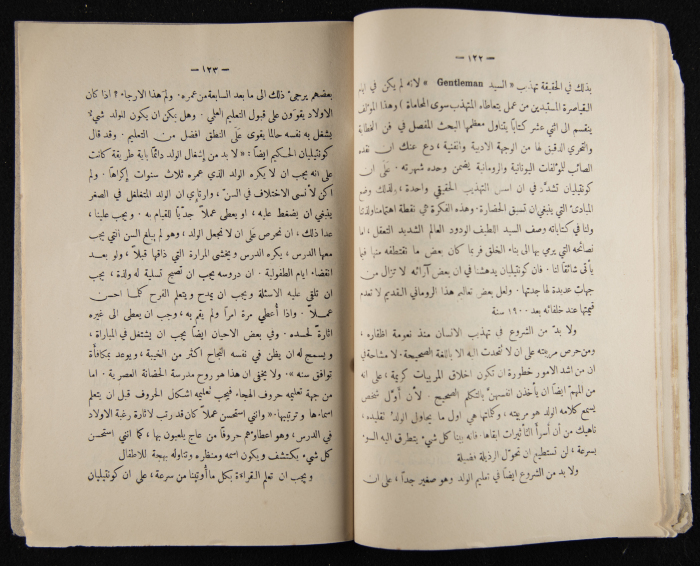 — ١٢٢ —
بذلك في الحقيقة تهذيب « السيد Gentleman » لانه لم يكن في ايام
القياصرة المستبدين من عمل يتعاطاه المتهذب سوى المحاماة ) وهذا المؤلف
ينقسم الى اثني عشر كتاباً يتناول معظمها البحث المفصل في فن الخطابة
والتحري الدقيق لها من الوجهة الادبية والفنية ، دع عنك ان نقده
الصائب للمؤلفات اليونانية والرومانية يضمن وحده شهرته . على ان
كونتيليان تشدد في ان اسس التهذيب الحقيقي واحدة ، بذلك وضع
المبادئ التي ينبغي ان تسبق الحضارة . وهذه الفكرة هي نقطة اهتمامنا ولذتنا
ولنا في كتاباته وصف السيد اللطيف الودود العالم الشديد التعقل ، اما
نصائحه التي يرمي بها الى بناء الخلق فربما كان بعض ما نقتطفه منها فيما
يأتي شائقاً لنا . فان كونتيليان يدهشنا في ان بعض آرائه لا تزال من
جهات عديدة لها جدتها . ولعل بعض تعاليم هذا الروماني القديم لا تعدم
قيمتها عند خلفائه بعد ١٩٠٠ سنة
ولا بد من الشروع في تهذيب الانسان منذ نعومة اظفاره ،
ومن حرص مربيته على ان لا تتحدث اليه الا باللغة الصحيحة . لا مشاحة في
ان من اشد الامور خطورة ان تكون اخلاق المربيات كريمة ، على انه
من المهم ايضاً ان يأخذن انفسهن بالتكلم الصحيح . لأن أول شخص
يسمع كلامه الولد هو مربيته ، وكلماتها هي اول ما يحاول الولد تقليده ،
ناهيك من أن أسرأ التأثيرات ابقاها . فانه بينا كل شيء يتطرق اليه السوء
بسرعة ، لن تستطيع ان تحول الرذيلة فضيلة
ولا بد من الشروع ايضاً في تعليم الولد وهو صغير جداً ، على ان
— ١٢٣ —
بعضهم يرجئ ذلك الى ما بعد السابعة من عمره . ولم هذا الارجاء ؟ اذا كان
الاولاد يقوون على قبول التعليم الخلقي . وهل يمكن ان يكون للولد شيء
يشغل به نفسه حالما يقوى على النطق افضل من التعليم . وقد قال
كونتيليان الحكيم ايضاً : « لا بد من إشغال الولد دائماً باية طريقة كانت
على انه يجب ان لا يكره الولد الذي عمره ثلاث سنوات إكراهاً . ولم
اكن لأنسى الاختلاف في السن ، وارتأي ان الولد المتغلغل في الصغر
ينبغي ان يضغط عليه ، او يعطى عملاً جدياً للقيام به . ويجب علينا ،
عدا ذلك ، ان نحرص على ان لا نجعل الولد ، وهو لم يبلغ السن التي يحب
معها الدرس ، يكره الدرس ويخشى المرارة التي ذاقها قبلاً ، ولو بعد
انقضاء ايام الطفولية . ان دروسه يجب ان تصبح تسلية له ولذة ، يجب
ان تلقى عليه الاسئلة ويجب ان يمدح ويتعلم الفرح كلما احسن
عملاً . واذا أعطي مرة امراً ولم يقم به ، وجب ان يعطى الى غيره
اثارة لحسده . وفي بعض الاحيان ايضاً يجب ان يشتغل في المباراة ،
ويسمح له ان يظن في نفسه النجاح اكثر من الخيبة ، ويوعد بمكافأة
توافق سنه » . ولا يخفى ان هذا هو روح مدرسة الحضانة العصرية . اما
من جهة تعليمه حروف الهجاء فيجب تعليمه اشكال الحروف قبل ان يتعلم
اسماءها وترتيبها . « وانني استحسن عملاً كان قد رتب لاثارة رغبة الاولاد
في الدرس ، وهو اعطاؤهم حروفاً من عاج يلعبون بها ، كما انني استحسن
كل شيء يكتشف ويكون اسمه ومنظره وتناوله بهجة للاطفال
ويجب ان تعلم القراءة بكل ما أوتينا من سرعة ، على ان كونتيليان